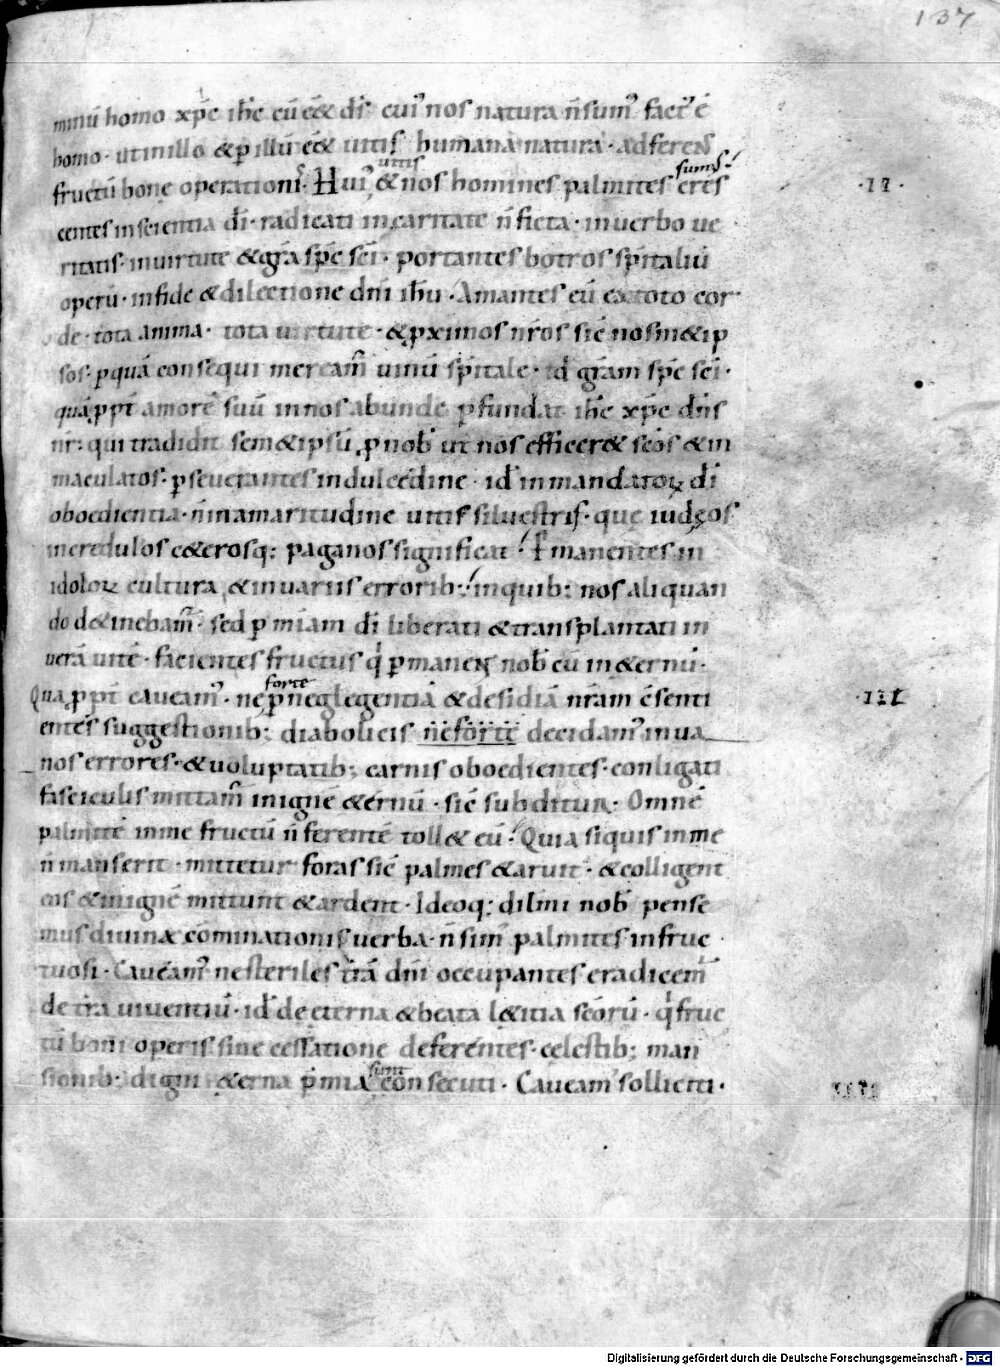 137
minū homo xp̄c ih̄c cū eēt d̄s cui' nos natura n̄ sum' fact' ē
homo · ut in illo & p illū eēt uitis humana natura · ad ferend
fructū bone operationis' Hui' uitis & nos homines palmites sum' cres
centes in scientia dī · radicati in caritate n̄ ficta · in uerbo ue
ritatis · in uirtute & grā sp̄c sci · portantes botros sp̄italiū
operū · in fide & dilectione dn̄i ih̄u · Amantes eū ex toto cor
de · tota anima · tota uirtute · & pximos nr̄os sic nosm&ip
sos · p quā consequi meream' uinū sp̄itale · id grām sp̄c sci ·
quā ppt amorē suū in nos abunde pfundat ih̄c xp̄c dn̄s
nr̄ · qui tradidit sem&ipsū p nob ut nos efficer& scōs & in
maculatos · pseuerantes in dulcedine · id in mandatoꝝ dī
oboedientia · n̄ in amaritudine uitis siluestris · que iudęos
incredulos c&erosq; paganos significat · pmanentes in
idoloꝝ cultura & in uariis errorib; · in quib; nos aliquan
do d&inebam' · sed p miām dī liberati & transplantati in
uerā uitē · facientes fructus q pman& nob cū in &ernū ·
Qua ppt caueam' · ne forte p neglegentiā & desidiā nr̄am c̄senti
entes suggestionib; diabolicis ne forte decidam' in ua
nos errores · & uoluptatib; carnis oboedientes · conligati
fasciculis mittam' in ignē &ernū · sic subditur · Omnē
palmitē in me fructū n̄ ferentē toll& eū · Quia siquis in me
n̄ manserit · mittetur foras sic palmes & aruit · & colligent
eos & in ignē mittunt & ardent · Ideoq; dilm̄i nob pense
mus diuinæ cōminationis uerba · n̄ sim' palmites infruc
tuosi · Caueam' ne steriles tr̄ā dn̄i occupantes eradicem'
de tr̄a uiuentiū · id de eterna & beata l&itia scōrū · q fruc
tū boni operis sine cessatione deferentes · celestib; man
sionib; digni &erna p̄mia sunt consecuti · Caueam' solliciti ·
· II ·
· III
· IIII
Digitalisierung gefördert durch die Deutsche Forschungsgemeinschaft - DFG